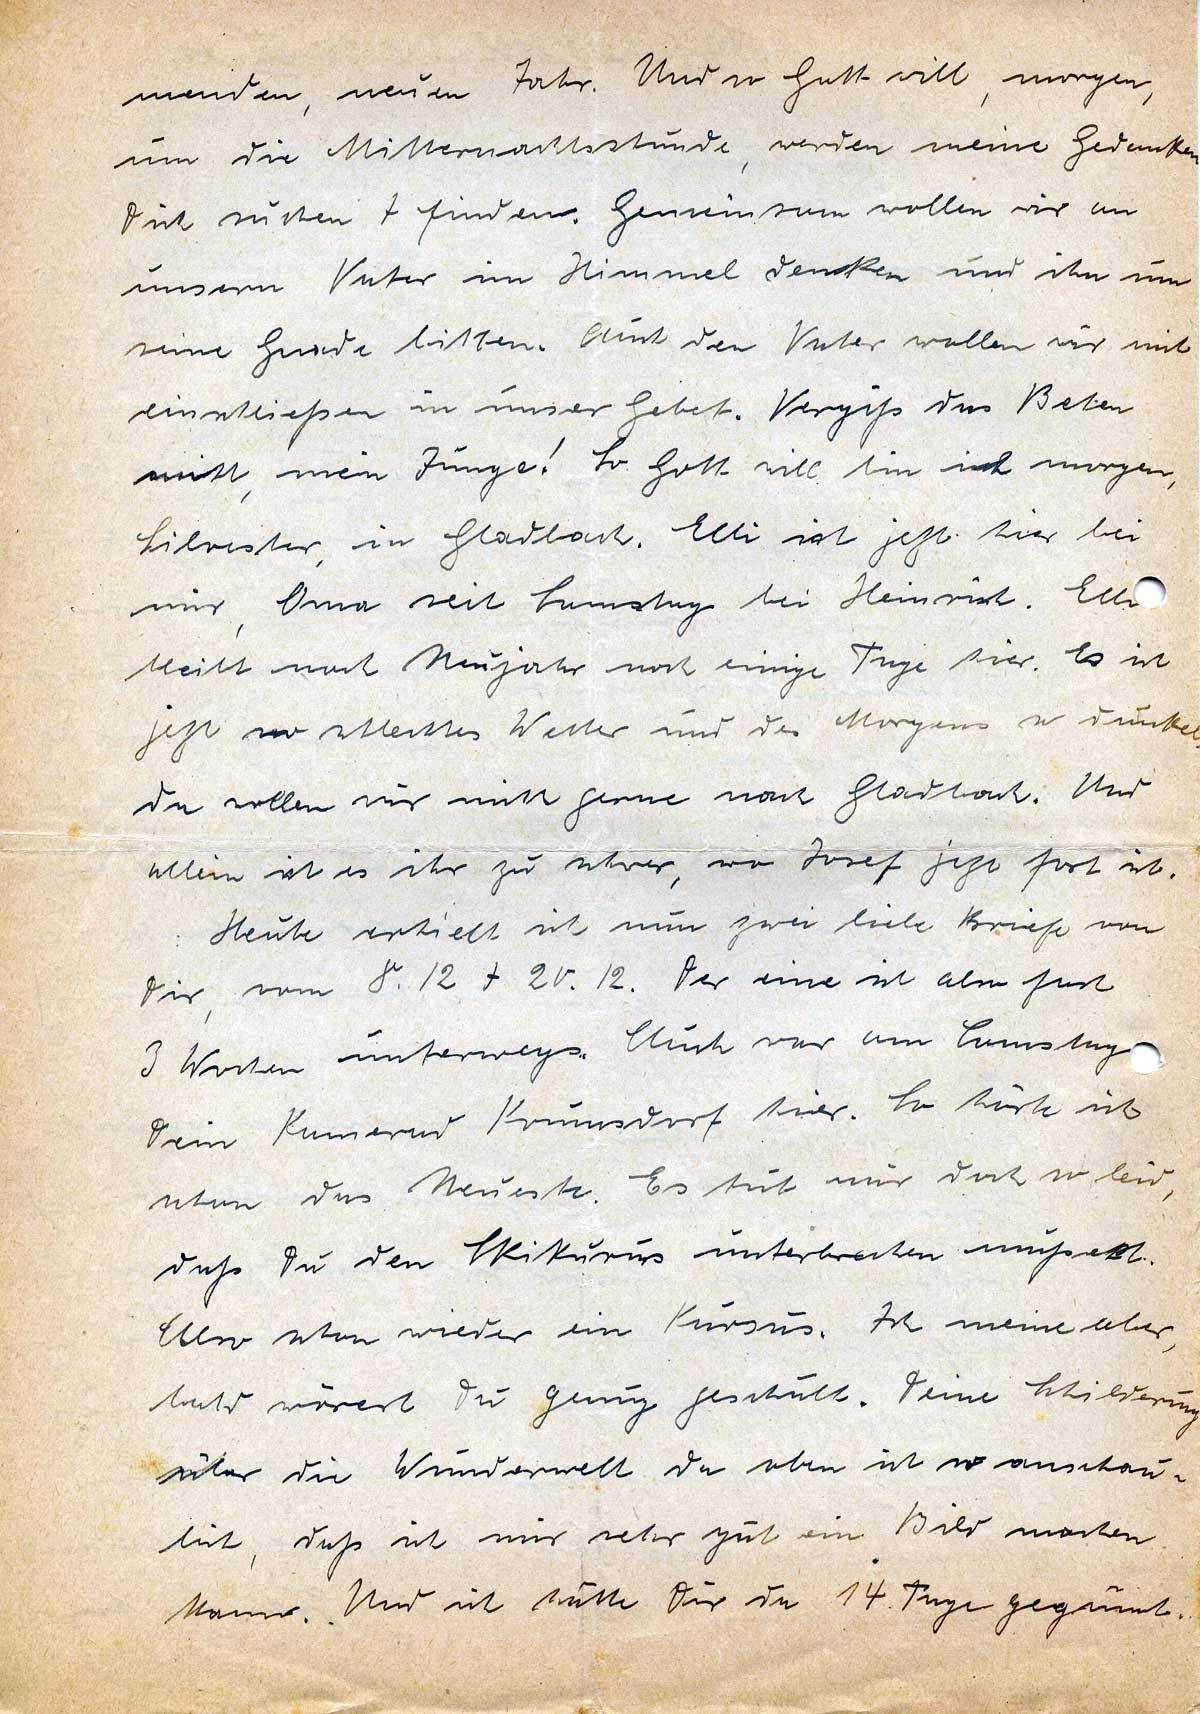 menden, neuen Jahr. Und so Gott will, morgen,
um die Mitternachtsstunde, werden meine Gedanken
Dich suchen + finden. Gemeinsam wollen wir an
unsern Vater im Himmel denken und ihn um
seine Gnade bitten. Auch den Vater wollen wir mit
einschließen in unser Gebet. Vergiß das Beten
nicht, mein Junge! So Gott will bin ich morgen,
Silvester, in Gladbach. Elli ist jetzt hier bei
mir, Oma seit Samstag bei Heinrich. Elli
bleibt nach Neujahr noch einige Tage hier. Es ist
jetzt so schlechtes Wetter und des Morgens so dunkel,
da wollen wir nicht gerne nach Gladbach. Und
allein ist es ihr zu schwer, wo Josef jetzt fort ist.
Heute erhielt ich nun zwei liebe Briefe von
Dir, vom 8. 12 + 20. 12. Der eine ist also fast
3 Wochen unterwegs. Auch war am Samstag
Dein Kamerad hier. So hörte ich
schon das Neueste. Es tut mir doch so leid,
daß Du den Skikursus unterbrechen mußtest.
Also schon wieder ein Kursus. Ich meine aber,
bald wärest Du genug geschult. Deine Schilderung
über die Wunderwelt da oben ist so anschau-
lich, daß ich mir sehr gut ein Bild machen
kann. Und ich hätte Dir da 14 Tage gegönnt.